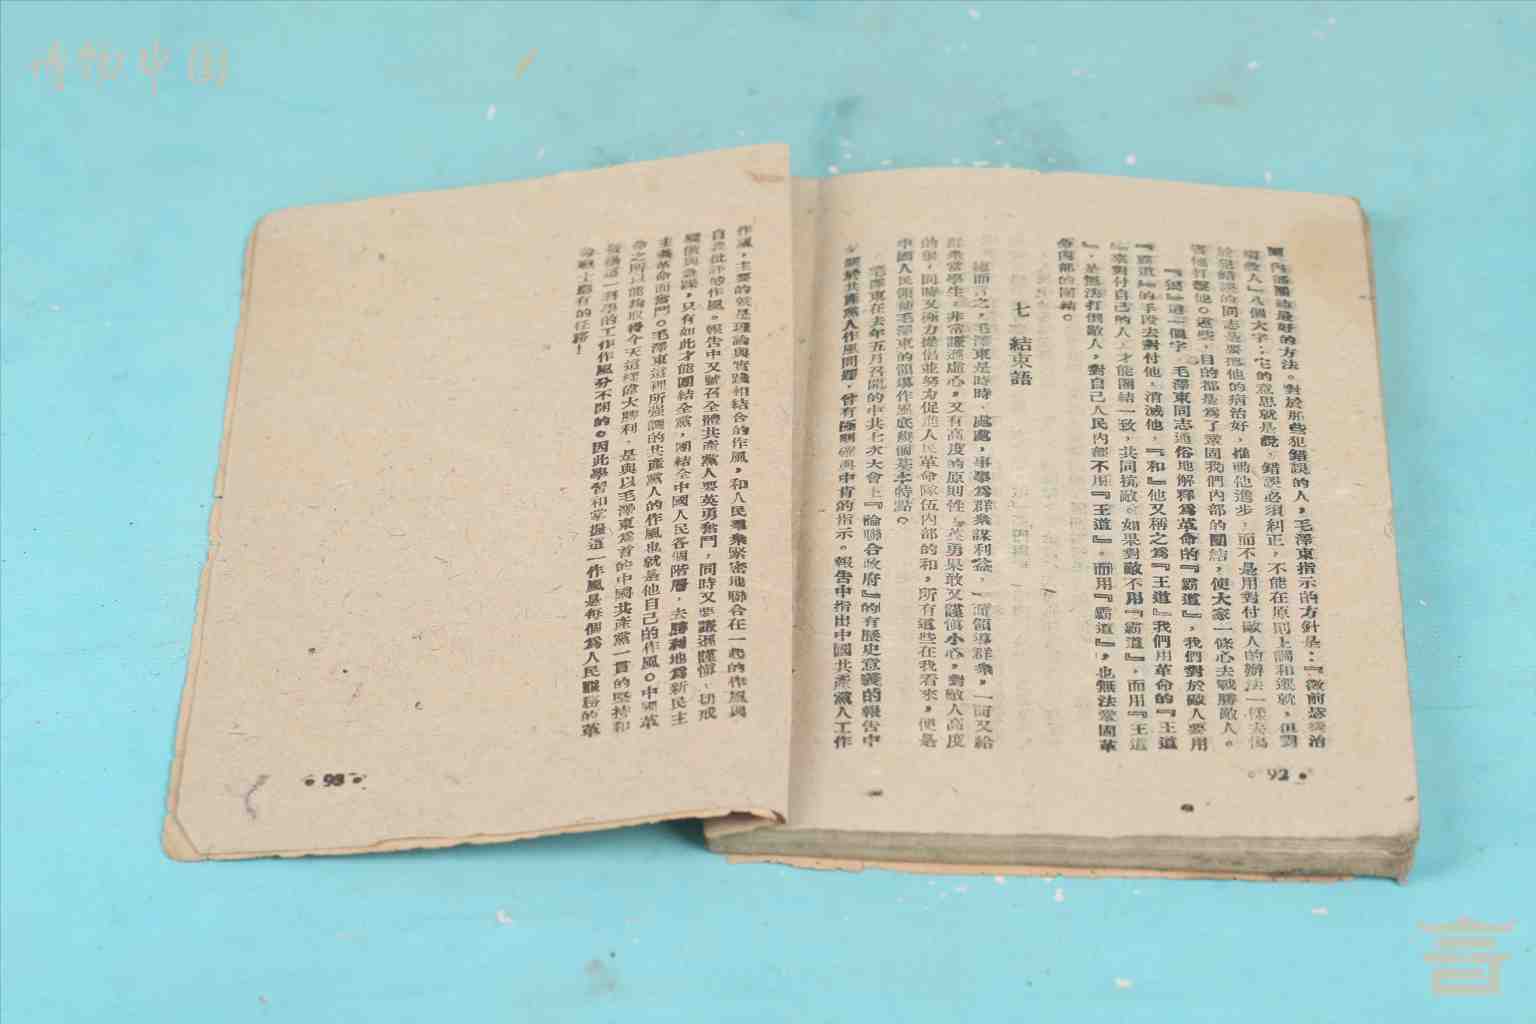 團，內部團結最好的方法。對於那些犯錯誤的人，毛澤東指示的方針是：『懲前毖後治
病救人』八個大字；它的意思就是說，錯誤必須糾正，不能在原則上調和遷就，但對
於犯錯誤的同志是要把他的病治好，推動他進步，而不是用對付敵人的辦法一樣去傷
害他打擊他。這些，目的都是爲了鞏固我們內部的團結，使大家一條心去戰勝敵人。
『狠』這一個字，毛澤東同志通俗地解釋爲革命的『霸道』，我們對於敵人要用
『霸道』的手段去對付他，消滅他，『和』他又稱之爲『王道』我們用革命的『王道
』來對付自己的人，才能團結一致，共同抗敵。如果對敵不用『霸道』，而用『王道
』，是無法打倒敵人，對自己人民內部不用『王道』，而用『霸道』，也無法鞏固革
命內部的團結。
七 結束語
總而言之，毛澤東是時時、處處，事事爲群衆謀利益，一面領導群衆，一面又給
群衆當學生，非常謙遜虛心，又有高度的原則性，英勇果敢又謹慎小心，對敵人高度
的狠，同時又極力提倡並努力促進人民革命隊伍內部的和，所有這些在我看來，便是
中國人民領袖毛澤東的領導作風底幾個基本特點。
毛澤東在去年五月召開的中共七次大會上『論聯合政府』的有歷史意義的報告中
，關於共產黨人作風問題，曾有極明確與中肯的指示。報告中指出中國共產黨人工作
• 92 •
作風，主要的就是理論與實踐相結合的作風，和人民羣衆緊密地聯合在一起的作風與
自我批評的作風。報告中又號召全體共產黨人要英勇奮鬥，同時又要謙遜謹慎，切戒
驕傲與急躁，只有如此才能團結全黨，團結全中國人民各個階層，去勝利地爲新民主
主義革命而奮鬥。毛澤東這裡所强調的共產黨人的作風也就是他自己的作風。中國革
命之所以能夠取得今天這樣偉大勝利，是與以毛澤東爲首的中國共產黨一貫的堅持和
發揚這一列寧的工作作風分不開的。因此學習和掌握這一作風是每個爲人民服務的革
命戰士應有的任務！
• 93 •
博物中国